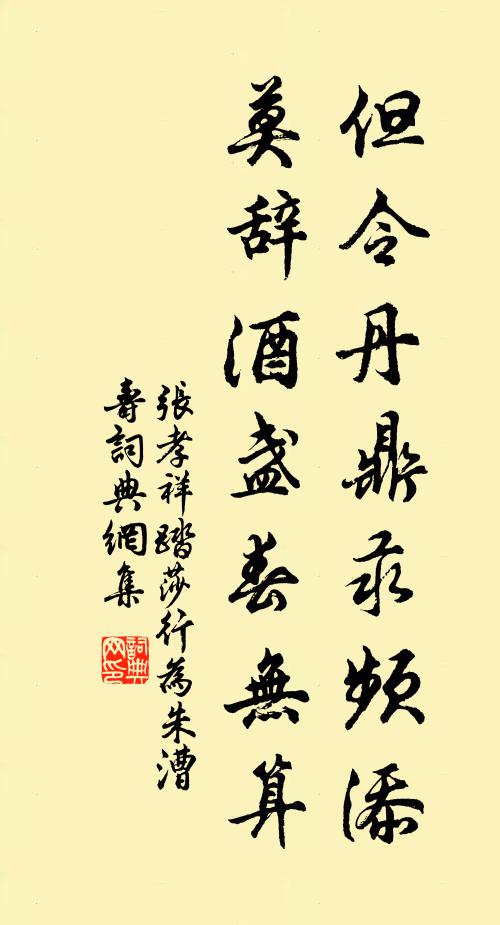 但令丹鼎汞頻添
莫辞酒盏春無算
張孝祥踏莎行為朱漕
壽詞典網集
詞典
网印